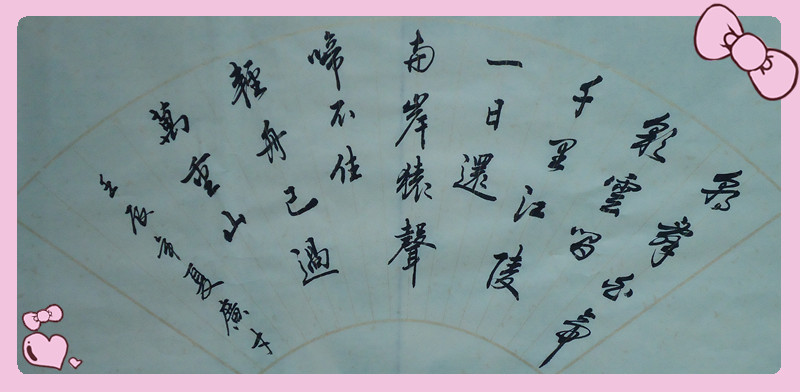 朝辭白帝
彩雲間
千里江陵
一日還
兩岸猿聲
啼不住
輕舟已過
萬重山
壬辰夏